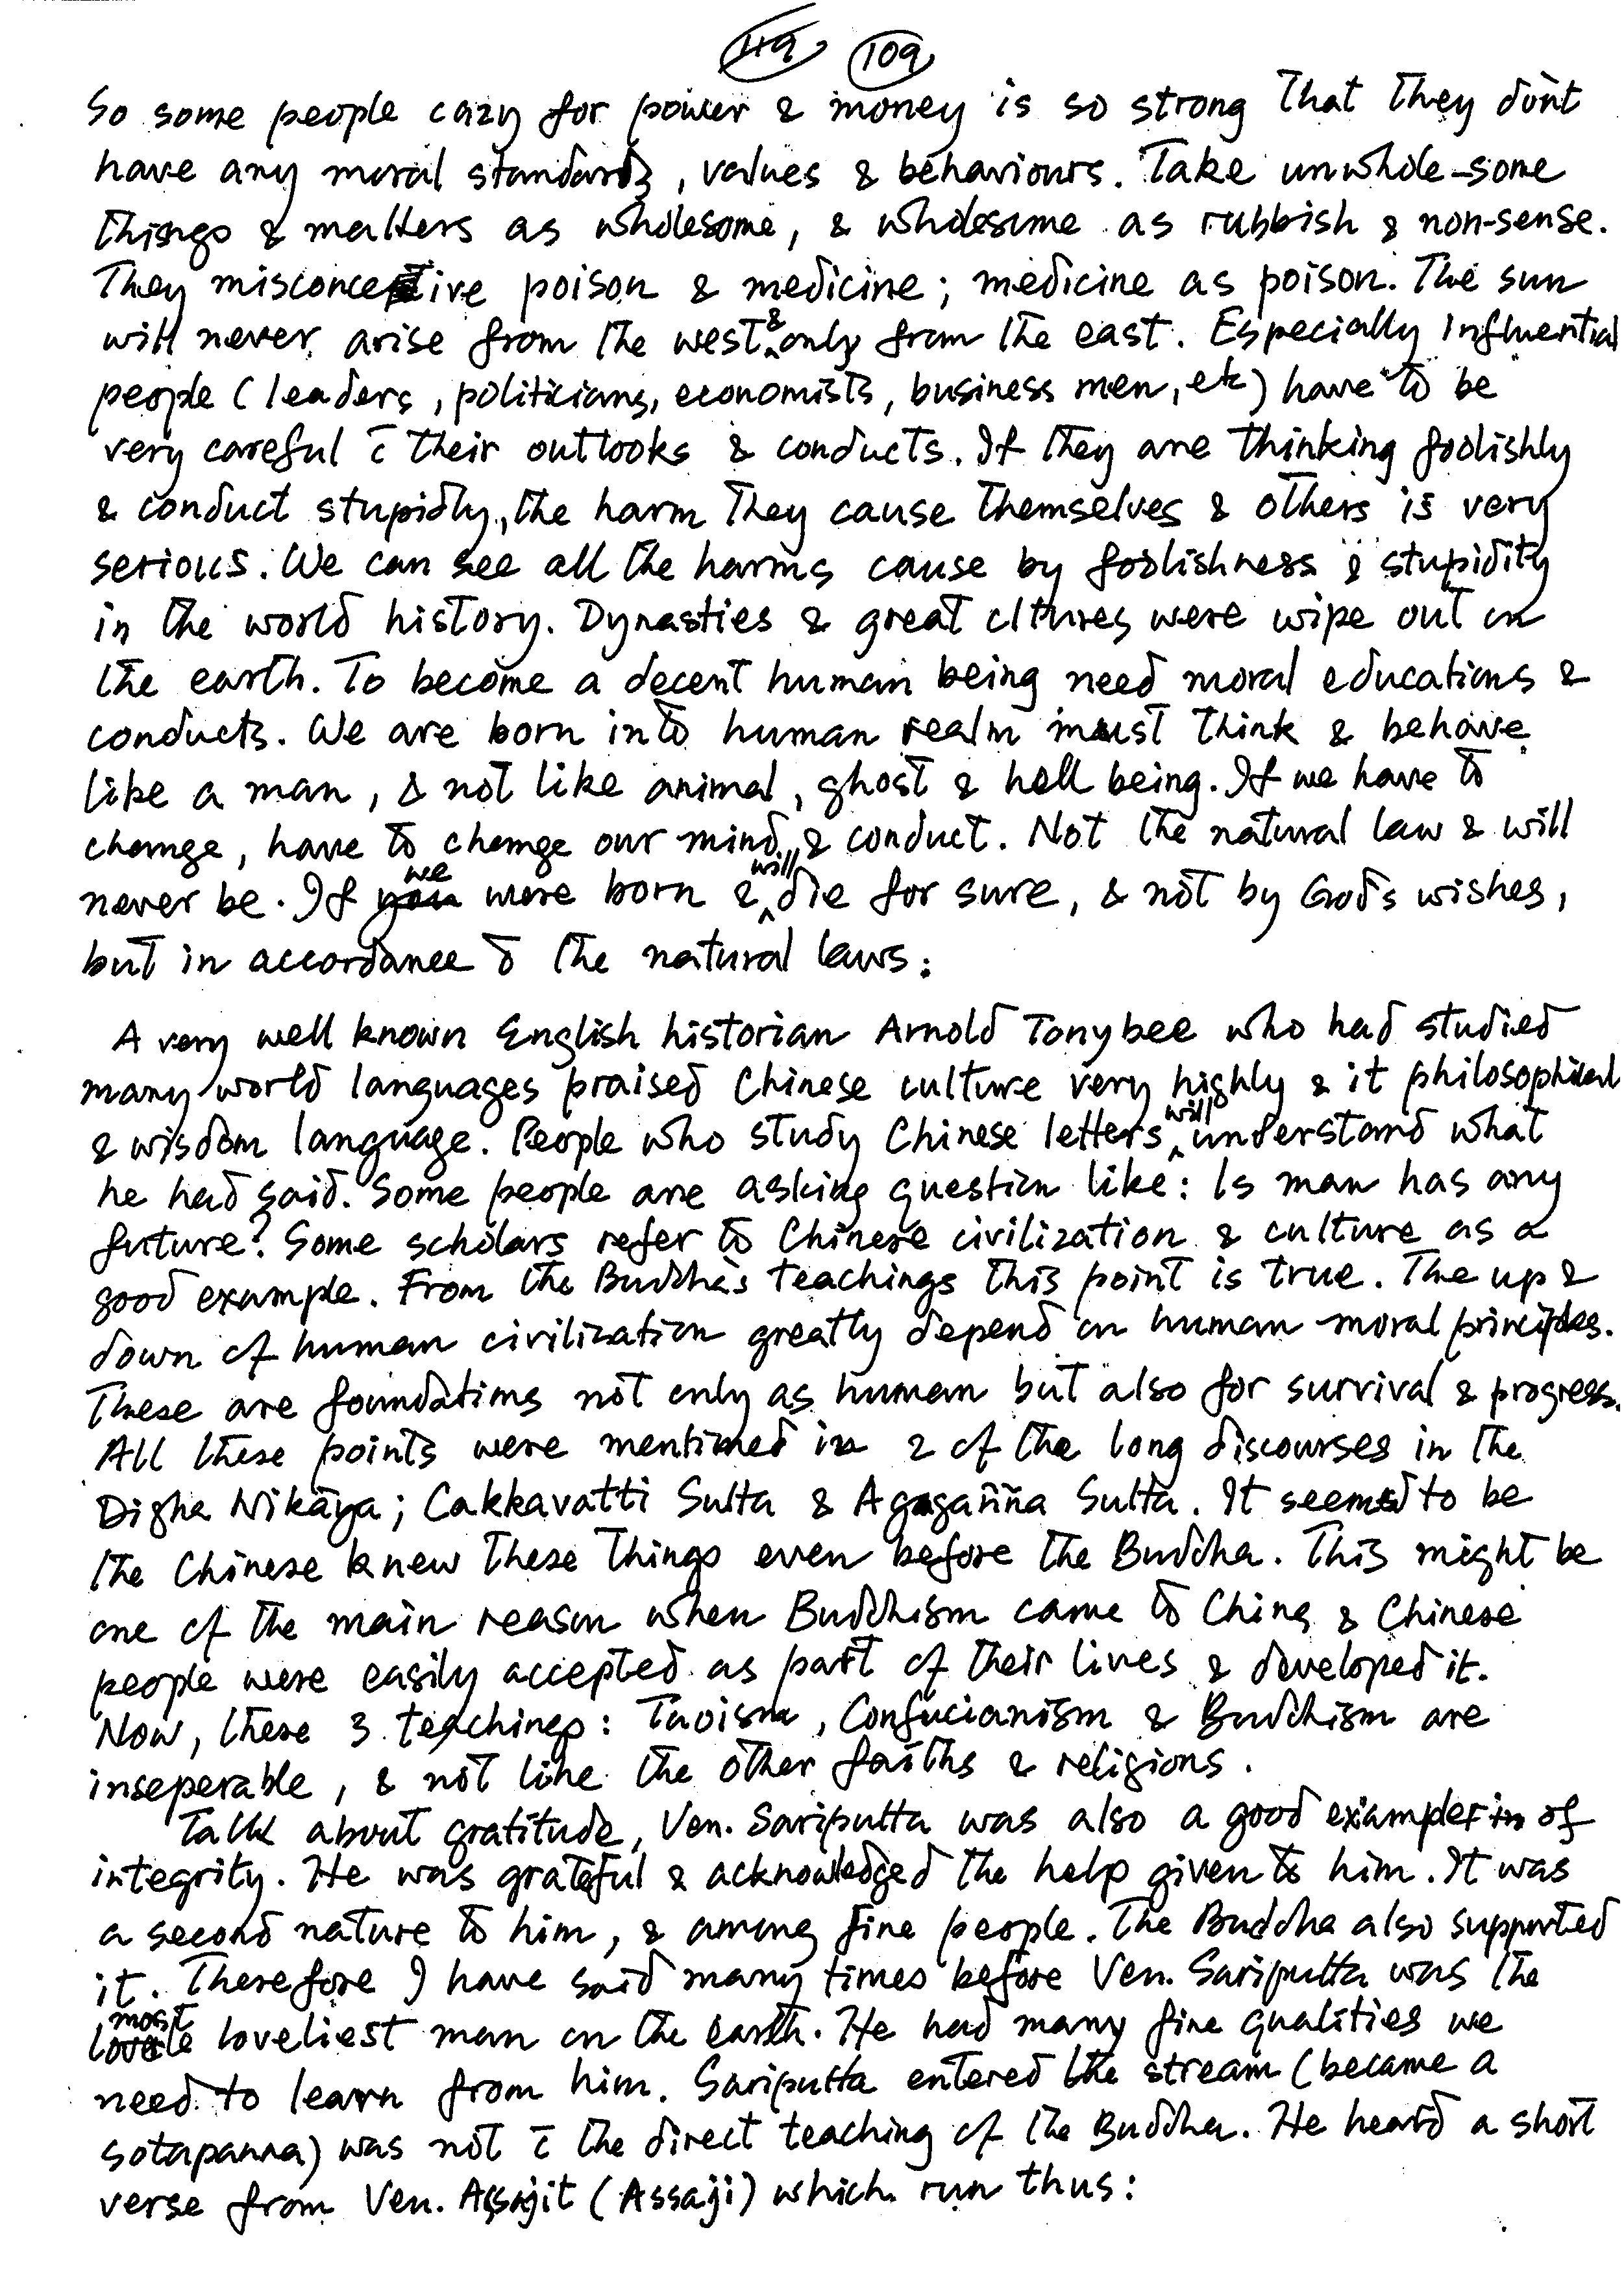 119 109
So some people cazy for power & money is so strong that they don't
have any moral standards, values & behaviours. Take unwhole-some
things & matters as wholesome, & wholesome as rubbish & non-sense.
They misconceive poison & medicine; medicine as poison. The sun
will never arise from the west & only from the east. Especially influential
people (leaders, politicians, economists, business men, etc) have to be
very careful c̄ their outlooks & conducts. If they are thinking foolishly
& conduct stupidly, the harm they cause themselves & others is very
serious. We can see all the harms cause by foolishness & stupidity
in the world history. Dynasties & great cltures were wipe out on
the earth. To become a decent human being need moral educations &
conducts. We are born into human realm must think & behave
like a man, & not like animal, ghost & hell being. If we have to
change, have to change our mind & conduct. Not the natural law & will
never be. If we were born & will die for sure, & not by God's wishes,
but in accordance to the natural laws.
A very well known English historian Arnold Tonybee who had studied
many world languages praised Chinese culture very highly & it philosophical
& wisdom language. People who study Chinese letters will understand what
he had said. Some people are asking question like: Is man has any
future? Some scholars refer to Chinese civilization & culture as a
good example. From the Buddha's teachings this point is true. The up &
down of human civilization greatly depend on human moral principles.
These are foundations not only as human but also for survival & progress.
All these points were mentioned in 2 of the long discourses in the
Digha Nikāya; Cakkavatti Sutta & Aggañña Sutta. It seemed to be
the Chinese knew these things even before the Buddha. This might be
one of the main reason when Buddhism came to China & Chinese
people were easily accepted as part of their lives & developed it.
Now, these 3 teachings: Taoism, Confucianism & Buddhism are
inseperable, & not like the other faiths & religions.
Talk about gratitude, Ven. Sariputta was also a good example of
integrity. He was grateful & acknowledged the help given to him. It was
a second nature to him, & among fine people. The Buddha also supported
it. Therefore I have said many times before Ven. Sariputta was the
most loveliest man on the earth. He had many fine qualities we
need to learn from him. Sariputta entered the stream (became a
sotapanna) was not c̄ the direct teaching of the Buddha. He heard a short
verse from Ven. Assajit (Assaji) which run thus: